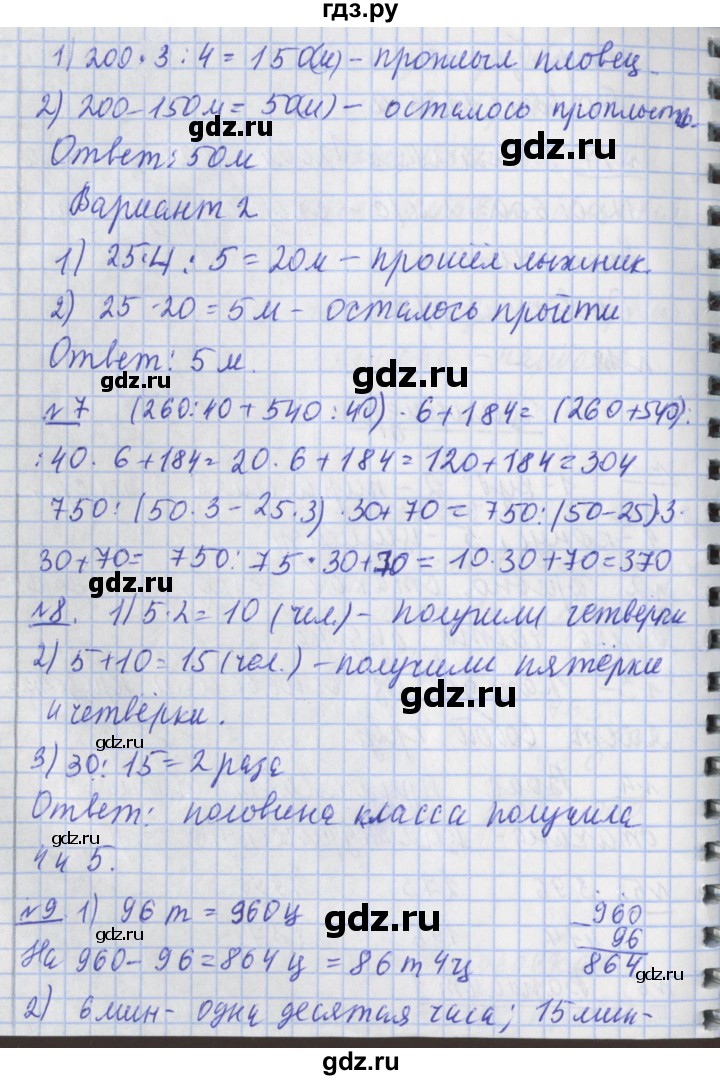 гдз.ру
1) 200 · 3 : 4 = 150(м) - проплыл пловец
2) 200 - 150м = 50(м) - осталось проплыть.
gdz.ru
gdz.ru
Ответ: 50м
Вариант 2
1) 25·4 : 5 = 20м - прошёл лыжник
2) 25 - 20 = 5м - осталось пройти
gdz.ru
Ответ: 5 м.
gdz.ru
№7 (260:40 + 540 : 40) · 6 + 184 = (260 + 540) :
gdz.ru
gdz.ru
: 40 · 6 + 184 = 20 · 6 + 184 = 120 + 184 = 304
750 : (50 · 3 - 25·3) · 30 + 70 = 750 : (50-25)·3·
gdz.ru
30 + 70 = 750 : 75 · 30 + 70 = 10·30 + 70 = 370
№8. 1) 5·2 = 10 (чел.) - получили четвёрки
gdz.ru
2) 5 + 10 = 15 (чел.) - получили пятёрки
gdz.ru
и четвёрки.
gdz.ru
3) 30 : 15 = 2 раза
Ответ: половина класса получила
gdz.ru
4 и 5.
gdz.ru
№9 1) 96 т = 960 ц
960
gdz.ru
- 96
На 960 - 96 = 864 ц = 86 т 4 ц
864
gdz.ru
2) 6 мин - одна десятая часа; 15 мин-
gdz.ru
gdz.ru